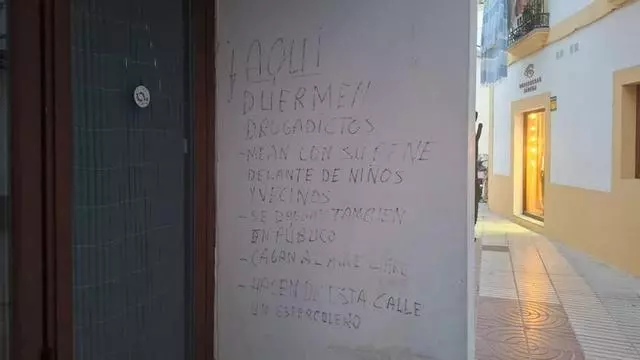 ¡AQUI
DUERMEN
DROGADICTOS
- MEAN CON SU PENE
DELANTE DE NIÑOS
Y VECINOS
- SE DROGAN TAMBIEN
EN PÚBLICO
- CAGAN AL AIRE LIBRE
- HACEN DE ESTA CALLE
UN ESTERCOLERO